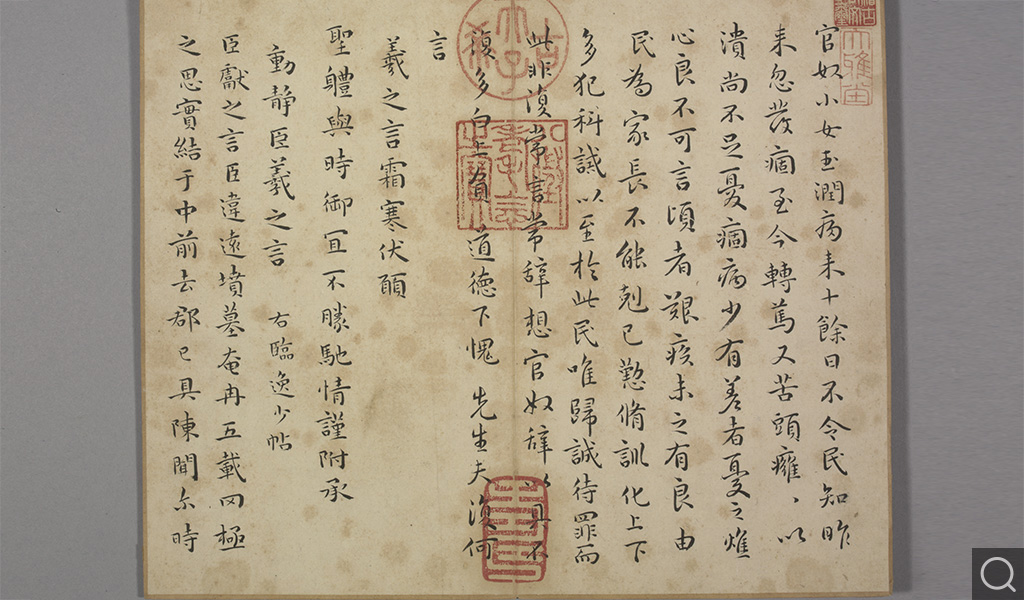 官奴小女玉潤病来十餘日不令民知昨
来忽發痼至今轉篤又苦頭癰、以
潰尚不足憂痼病少有差者憂之燋
心良不可言頃者艱疾未之有良由
民為家長不能剋己懃脩訓化上下
多犯科誡以至於此民唯歸誠待罪而
此非復常言常辞想官奴辞以具不
復多白上負 道德下愧 先生夫復何
言
羲之言霜寒伏願
聖軆與時御宜不勝馳情謹附承
動静臣羲之言 右臨逸少帖
臣獻之言臣違遠墳墓奄冉五載罔極
之思實結于中前去郡已具陳聞尓時